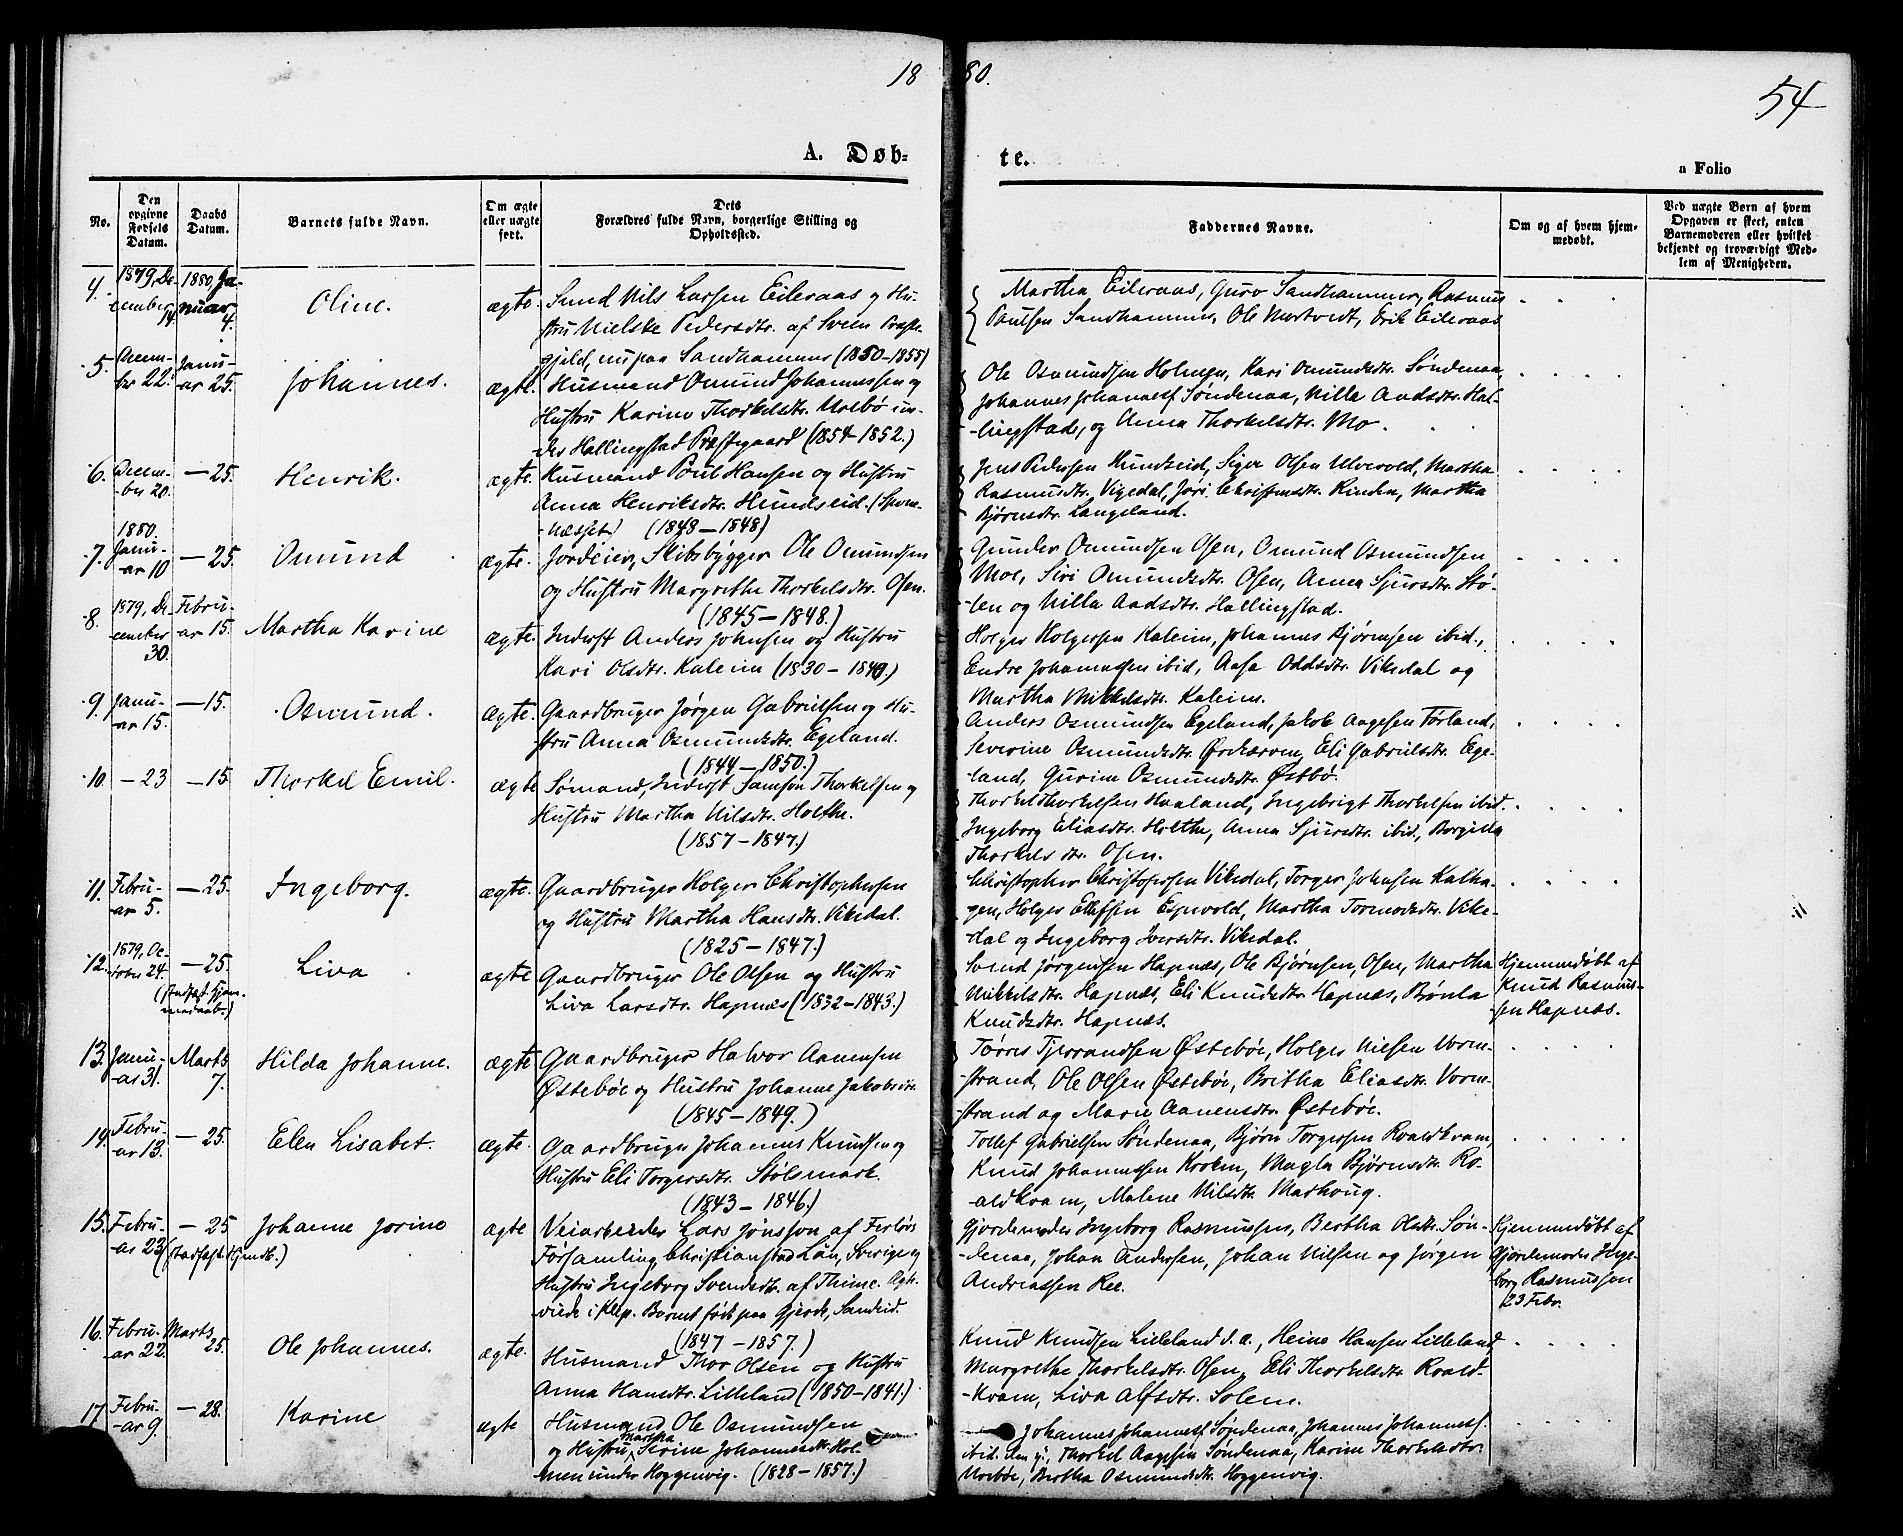 18
80.
54
A. Døb-
te.
a Folio
No.
Den
opgivne
Fødsels
Datum.
Daabs
Datum.
Barnets fulde Navn.
Om ægte
eller uægte
født.
Dets
Forældres fulde Navn, borgerlige Stilling og
Opholdssted.
Faddernes Navne.
Om og af hvem hjem-
medøbt.
Ved uægte Børn af hvem
Opgaven er skeet, enten
Barnemoderen eller hvilket
bekjendt og troværdigt Med-
lem af Menigheden.
4.
1879, De-
cember
14.
1880, Ja-
nuar
4.
Oline.
ægte.
Nils Larsen Eileraas og Hu-
stru Nielske Pedersdtr. af Sveen Præste-
gjeld, nu paa Sandhammer (1850-1855)
Martha Eileraas, Guro Sandhammer, Rasmus
Poulsen Sandhammer, Ole Mortvedt, Erik Eileraas
5.
Decem-
ber 22.
Janu-
ar 25.
Johannes.
ægte.
Husmand Omund Johannessen og
Hustru Karine Thorkelsdtr. Moebö un-
der Hallingstad Præstegaard (1854-1852.)
Ole Osmundsen Holmen, Kari Omundsdtr. Søndenaa,
Johannes Johannesf. Søndenaa, Nilla Aadsdtr. Hal-
-lingstad, og Anna Thorkelsdtr. Mo.
6.
Decem-
ber 20.
-25.
Henrik.
ægte.
Husmand Poul Hansen og Hustru
Anna Henriksdtr. Hundseid.
-næsset) (1848-1848)
Jens Pedersen Hundseid, Siger Olsen Ulvevold, Martha
Rasmusdtr. Vigedal, Jøri Christensdtr. Rinden, Martha
Bjørnsdtr. Langeland.
7.
1880.
Janu-
ar 10
-25.
Omund
ægte.
Jordeier, Skibsbygger Ole Omundsen
og Hustru Margrethe Thorkelsdtr. Osen.
(1845-1848.)
Gunder Omundsen Osen, Omund Osmundsen
Moe, Siri Omundsdtr. Osen, Anna Sjursdtr. Stö-
-len og Nilla Aadsdtr. Hallingstad.
8.
1879, De-
cember
30.
Febru-
ar 15.
Martha Karine
ægte.
Inderst Anders Johnsen og Hustru
Kari Olsdtr. Kaleim (1830-1840.)
Holger Holgersen Kaleim, Johannes Bjørnsen ibid.,
Endre Johannessen ibid, Aasa Oddsdtr. Vikedal og
Martha Mikkelsdtr. Kaleim.
9.
Janu-
ar 15.
-15.
Osmund.
ægte.
Gaardbruger Jørgen Gabrielsen og Hu-
stru Anna Osmundsdtr. Egeland.
(1844-1850.)
Anders Osmundsen Egeland, Jakob Aagesen Førland,
Severine Osmundsdtr. Ørekærven, Eli Gabrielsdtr. Ege-
-land, Gurine Osmundsdtr. Østbö.
10.
-23
-15.
Thorkel Emil.
ægte
Sømand, Inderst Samson Thorkelsen og
Hustru Martha Nilsdtr. Holthe.
(1857-1847.)
Thorkel Thorkelsen Haaland, Ingebrigt Thorkelsen ibid.
Ingeborg Eliasdtr. Holthe, Anna Sjursdtr. ibid, Borgilda
Thorkelsdtr. Osen.
11.
Febru-
ar 5.
-25.
Ingeborg.
ægte.
Gaardbruger Holger Christophersen
og Hustru Martha Hansdtr. Vikedal.
(1825-1847.)
Christopher Christofersen Vikedal, Torger Johnsen Kalha-
gen, Holger Ellefsen Espevold, Martha Tormodsdtr. Vike-
dal og Ingeborg Iversdtr. Vikedal.
12.
1879, Oc-
tober 24.
(stadfæst Hjem-
medaab)
-25.
Liva
ægte
Gaardbruger Ole Olsen og Hustru
Liva Larsdtr. Hapnæs (1832-1843.)
Svend Jørgensen Hapnæs, Ole Bjørnsen, Osen, Martha
Mikkelsdtr. Hapnæs, Eli Knudsdtr. Hapnæs, Brønla
Knudsdtr. Hapnæs.
Hjemmedøbt af
Knud Rasmus-
sen Hapnæs.
13.
Janu-
ar 31.
Marts
7.
Hilda Johanne.
ægte
Gaardbruger Halvor Aanensen
Østebøe og Hustru Johanne
(1845-1849.)
Tørres Tjerrandsen Østebøe, Holger Nilsen Vorm-
strand, Ole Olsen Østebøe, Britha Eliasdtr. Vorm-
strand og Marie Aanensdtr. Østebøe.
14.
Febru-
ar 13.
-25.
Elen Lisabet.
ægte.
Gaardbruger Johannes Knudsen og
Hustru Eli Torgersdtr. Stølsmark.
(1843-1846.)
Tollef Gabrielsen Søndenaa, Bjørn Torgersen Roaldkvam,
Knud Johannessen Kroken, Magla Bjørnsdtr. Ro-
aldkvam, Malene Nilsdtr. Markoug.
15.
Febru-
ar 23
-25
(stadfæst Hjemdb.)
Johanne Jorine
ægte
Veiarbeider Lars Jønsson af Ferløs
Forsamling, Christianstad Län, Sverige og
Hustru Ingeborg Svendsdtr. af Thime.
viede i Klep. Barnet født paa Gjerde, Sandeid.
(1847-1857.)
Gjordemoder Ingeborg Rasmussen, Bertha Olsdtr. Søn-
-denaa, Johan Andersen, Johan Nilsen og Jørgen
Andreassen Ree.
Hjemmedøbt af
Gjordemoder Inge-
borg Rasmussen
23 Febr.
16.
Febru-
ar 22.
Marts
25.
Ole Johannes.
ægte.
Husmand Thor Olsen og Hustru
Anna Hansdtr. Lilleland (1850-1841.)
Knud Knudsen Lilleland d.æ., Heine Hansen Lilleland,
Margrethe Thorkelsdtr. Osen, Eli Thorkelsdtr. Roald-
-kvam, Liva Alfsdtr. Solem.
17.
Febru-
ar 9.
-28.
Karine
ægte
Husmand Ole Osmundsen
og Hustru Martha Serine Johannesdtr. Hol-
men under Hoggenvig. (1828-1857.)
Johannes Johannesf. Søndenaa, Johannes Johannesf.
ibid. den y., Thorkel Aagesen Søndenaa, Karine Thorkelsdtr.
Moeboe, Bertha Osmundsdtr. Hoggenvig.